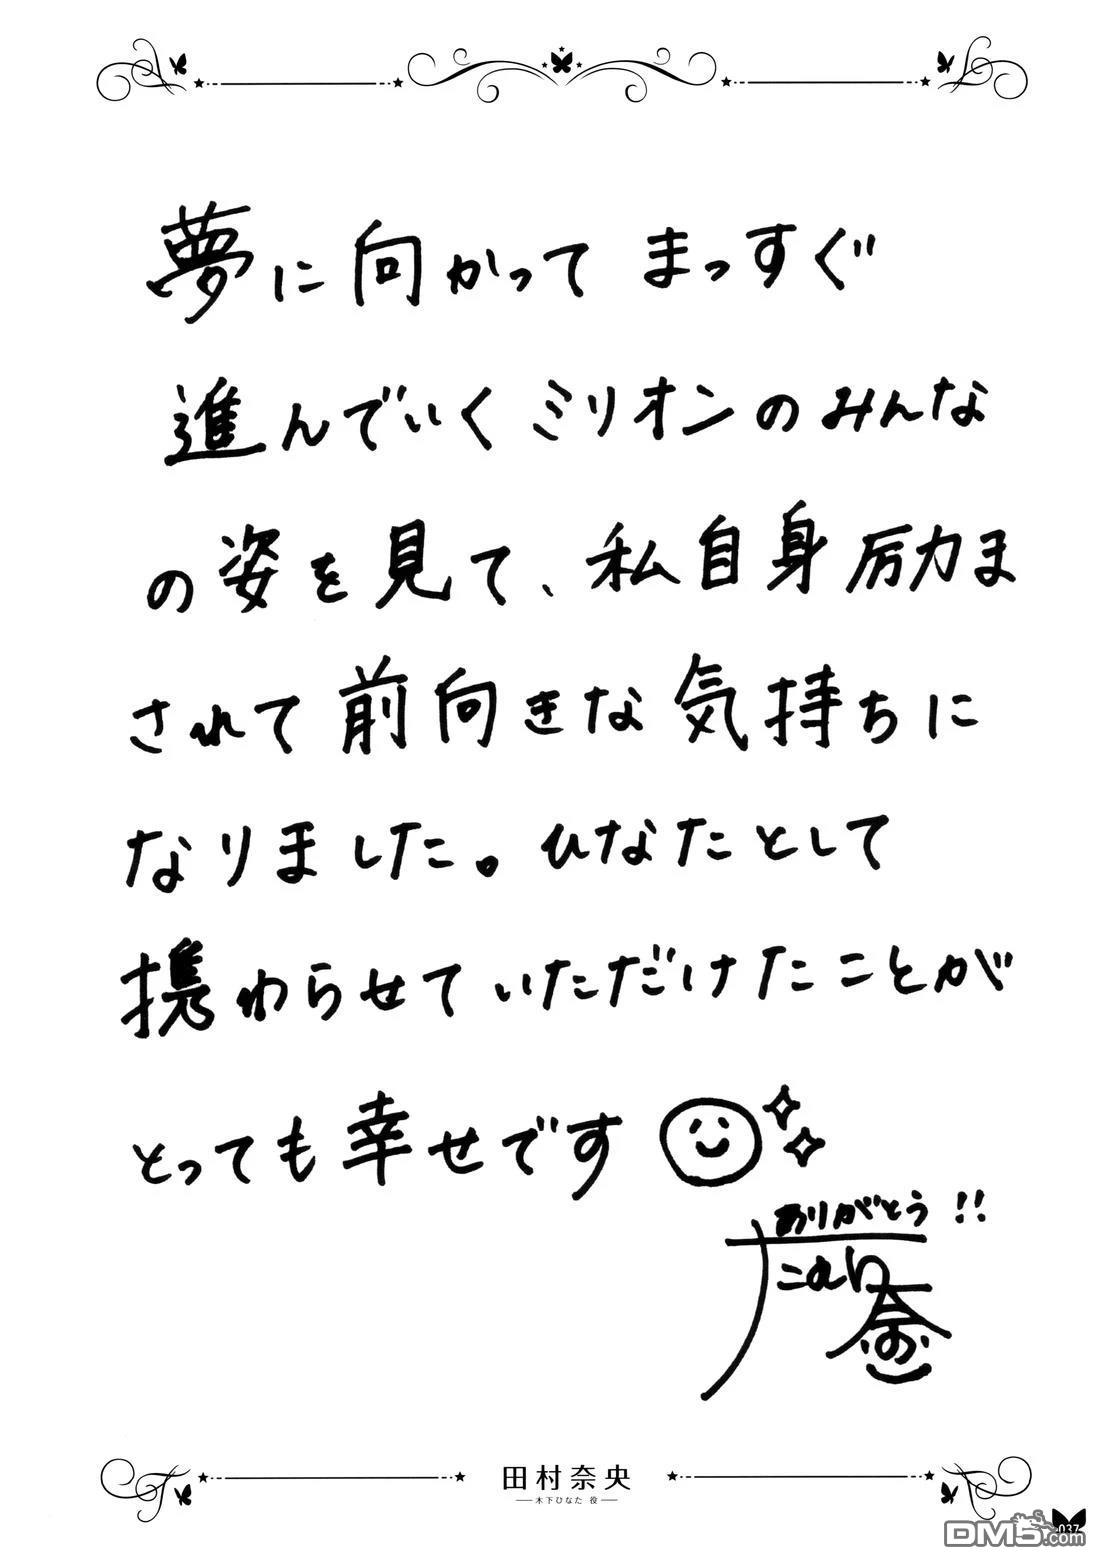 夢に向かってまっすぐ
進んでいくミリオンのみんな
の姿を見て、私自身励ま
されて前向きな気持ちに
なりました。ひなたとして
携わらせていただけたことが
とっても幸せです
ありがとう!!
田村奈央
木下ひなた 役
037
DM5.com